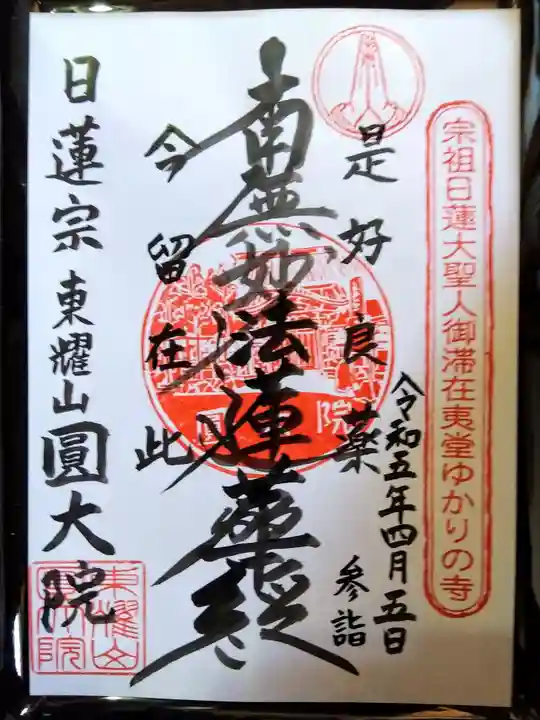 宗祖日蓮大聖人御滞在夷堂ゆかりの寺
令和五年四月五日
参詣
是好良薬
南無妙法蓮華経
今留在此
日蓮宗 東耀山 圓大院
東耀山
圓大院